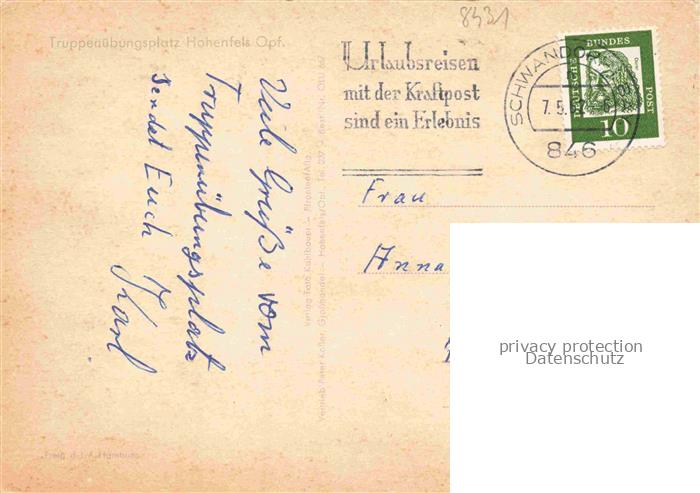 8431
Truppenübungsplatz Hohenfels Opf.
Urlaubsreisen
mit der Kraftpost
sind ein Erlebnis
SCHWANDORF
7.5.
846
DEUTSCHE BUNDES POST
10
Viele Grüße vom
Truppenübungsplatz
sendet Euch Karl
Frau
Anna
Verlag Foto Kahlbauer
Vertrieb Peter Koller, Großhandel
privacy protection
Datenschutz